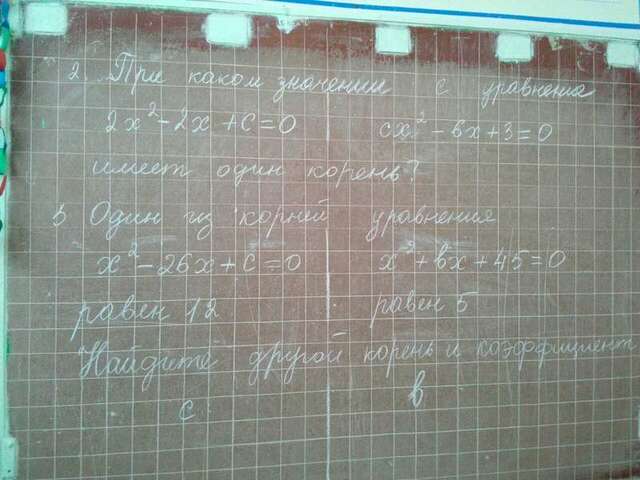 2. При каком значении c уравнение
2x² - 2x + C = 0 cx² - вx + 3 = 0
имеет один корень?
3 Один из корней уравнения
x² - 26x + C = 0 x² + вx + 45 = 0
равен 12 равен 5
Найдите другой корень и коэффициент
c в